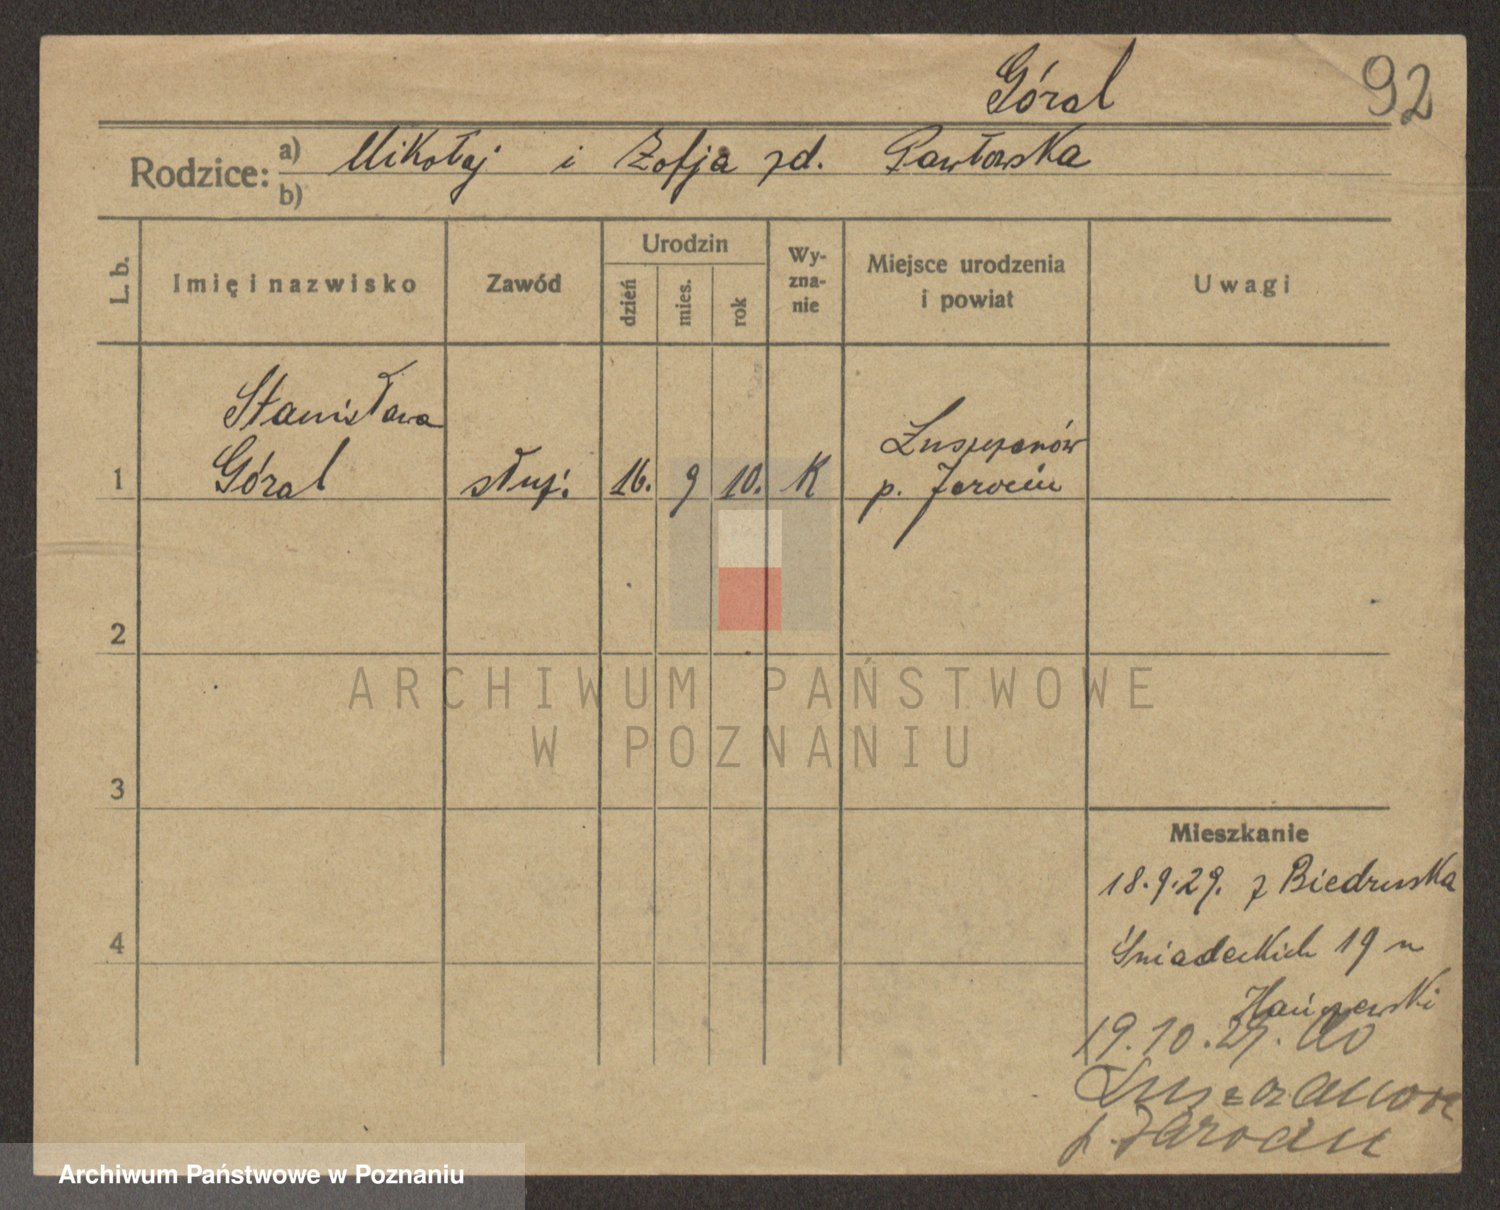 Góral
92
Rodzice: a) Mikołaj i Zofja zd. Pawłowska
b)
L. b.
Imię i nazwisko
Zawód
Urodzin
dzień
mies.
rok
Wy-
zna-
nie
Miejsce urodzenia
i powiat
Uwagi
Stanisława
1 Góral służ. 16. 9 10. K
Luszczanów
p. Jarocin
2
3
4
Mieszkanie
18.9.29. z Biedruska
Śniadeckich 19 u
19.10.29. do
Luszczanow
p. Jarocin
ARCHIWUM PAŃSTWOWE
W POZNANIU
Archiwum Państwowe w Poznaniu